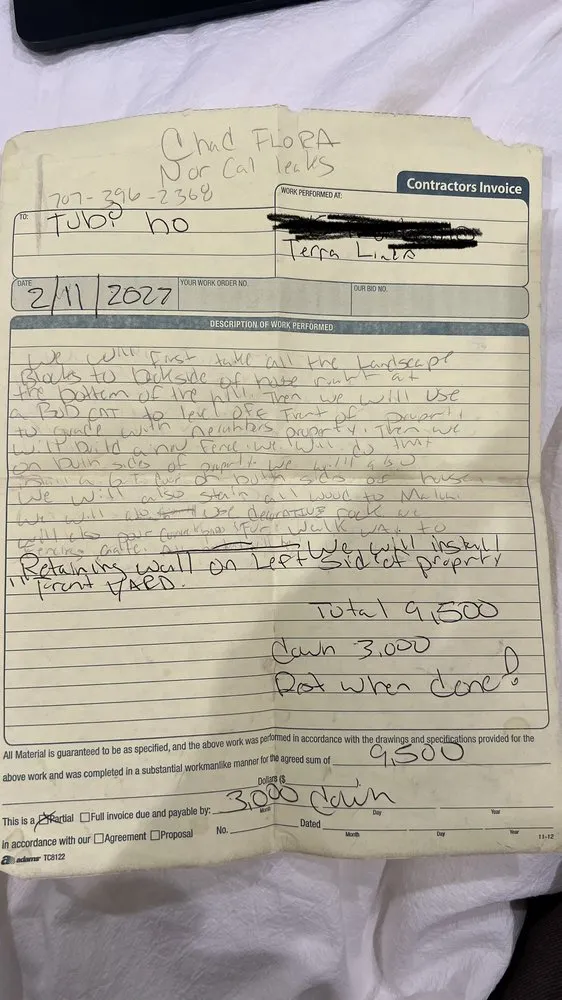 Chad FLORA
Nor Cal leaks
707-396-2368
Contractors Invoice
WORK PERFORMED AT:
TO:
Terra Linda
DATE
2/11/2022
YOUR WORK ORDER NO.
OUR BID NO.
DESCRIPTION OF WORK PERFORMED
We will first take all the Landscape
Blocks to backside of house right at
the bottom of the hill. Then we will use
a Bob CAT to level off Front of property
to grade with neighbors property. Then we
will build a new Fence we will do that
on both sides of property. we will also
on both sides of house.
we will also stain all wood to Match.
we will also use decorative rock we
will also pour walk way to
gate.
Retaining wall on Left side of property
We will install
Front YARD.
Total 9,500
down 3,000
Rest when done!
All Material is guaranteed to be as specified, and the above work was performed in accordance with the drawings and specifications provided for the
above work and was completed in a substantial workmanlike manner for the agreed sum of 9,500
Dollars ($ ).
This is a ☒Partial ☐Full invoice due and payable by: 3,000 down
Month Day Year
in accordance with our ☐Agreement ☐Proposal No. Dated
Month Day Year
adams TC8122
11-12